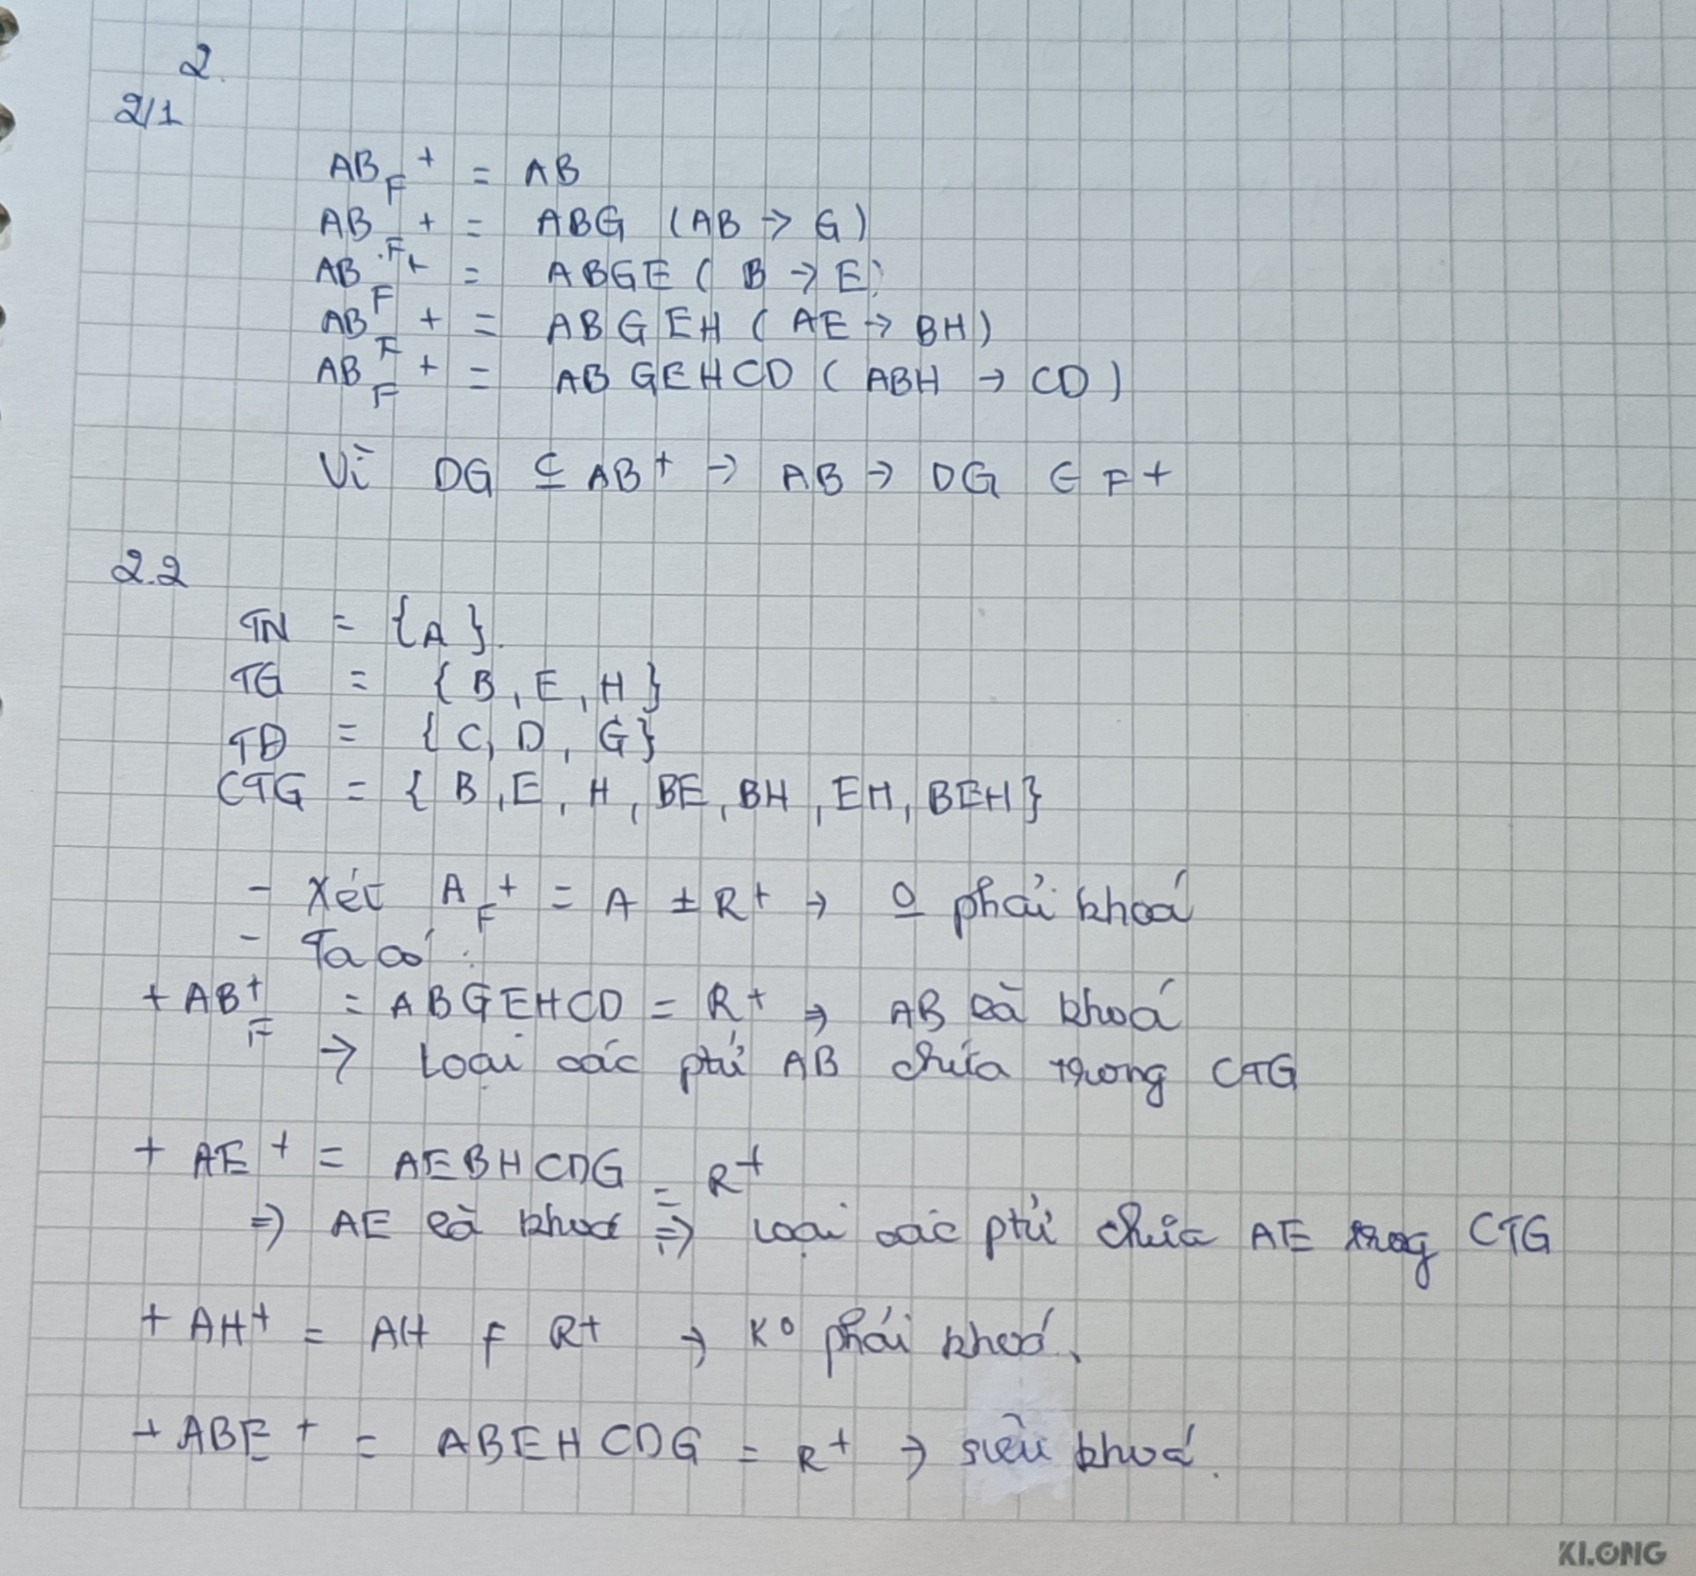 2.
2/1
AB_F^+ = AB
AB_F^+ = ABG (AB → G)
AB_F^+ = ABGE ( B → E)
AB_F^+ = ABGEH ( AE → BH)
AB_F^+ = ABGEHCD ( ABH → CD )
Vì DG ⊆ AB^+ → AB → DG ∈ F^+
2.2
TN = {A}.
TG = { B, E, H }
TĐ = { C, D, G }
CTG = { B, E, H, BE, BH, EH, BEH}
- Xét A_F^+ = A ≠ R^+ → phải khoá
- Ta có :
+ AB_F^+ = ABGEHCD = R^+ → AB là khoá
→ Loại các ptử AB chứa trong CTG
+ AE^+ = AEBHCDG = R^+
⇒ AE là khoá ⇒ Loại các ptử chứa AE trog CTG
+ AH^+ = AH ≠ R^+ → K° phải khoá.
+ ABE^+ = ABEHCDG = R^+ → siêu khoá.
KLONG